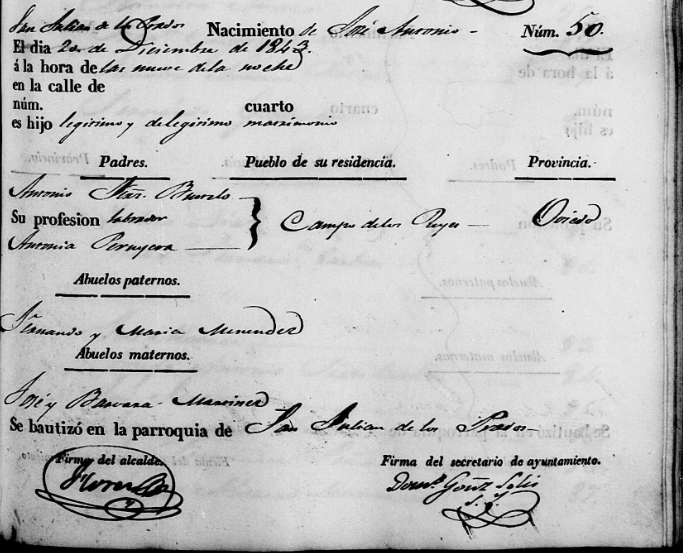 San Julian de los Prados Nacimiento de José Antonio - Núm. 50.
El dia 20 de Diciembre de 1843.
á la hora de las nueve de la noche
en la calle de
núm. cuarto
es hijo legitimo y de legitimo matrimonio
Padres. Pueblo de su residencia. Provincia.
Antonio
Su profesion labrador Campo de los Reyes Oviedo
Antonia
Abuelos paternos.
Fernando y Maria Menendez
Abuelos maternos.
José y Barvara Martinez
Se bautizó en la parroquia de San Julian de los Prados
Firma del alcalde. Firma del secretario de ayuntamiento.